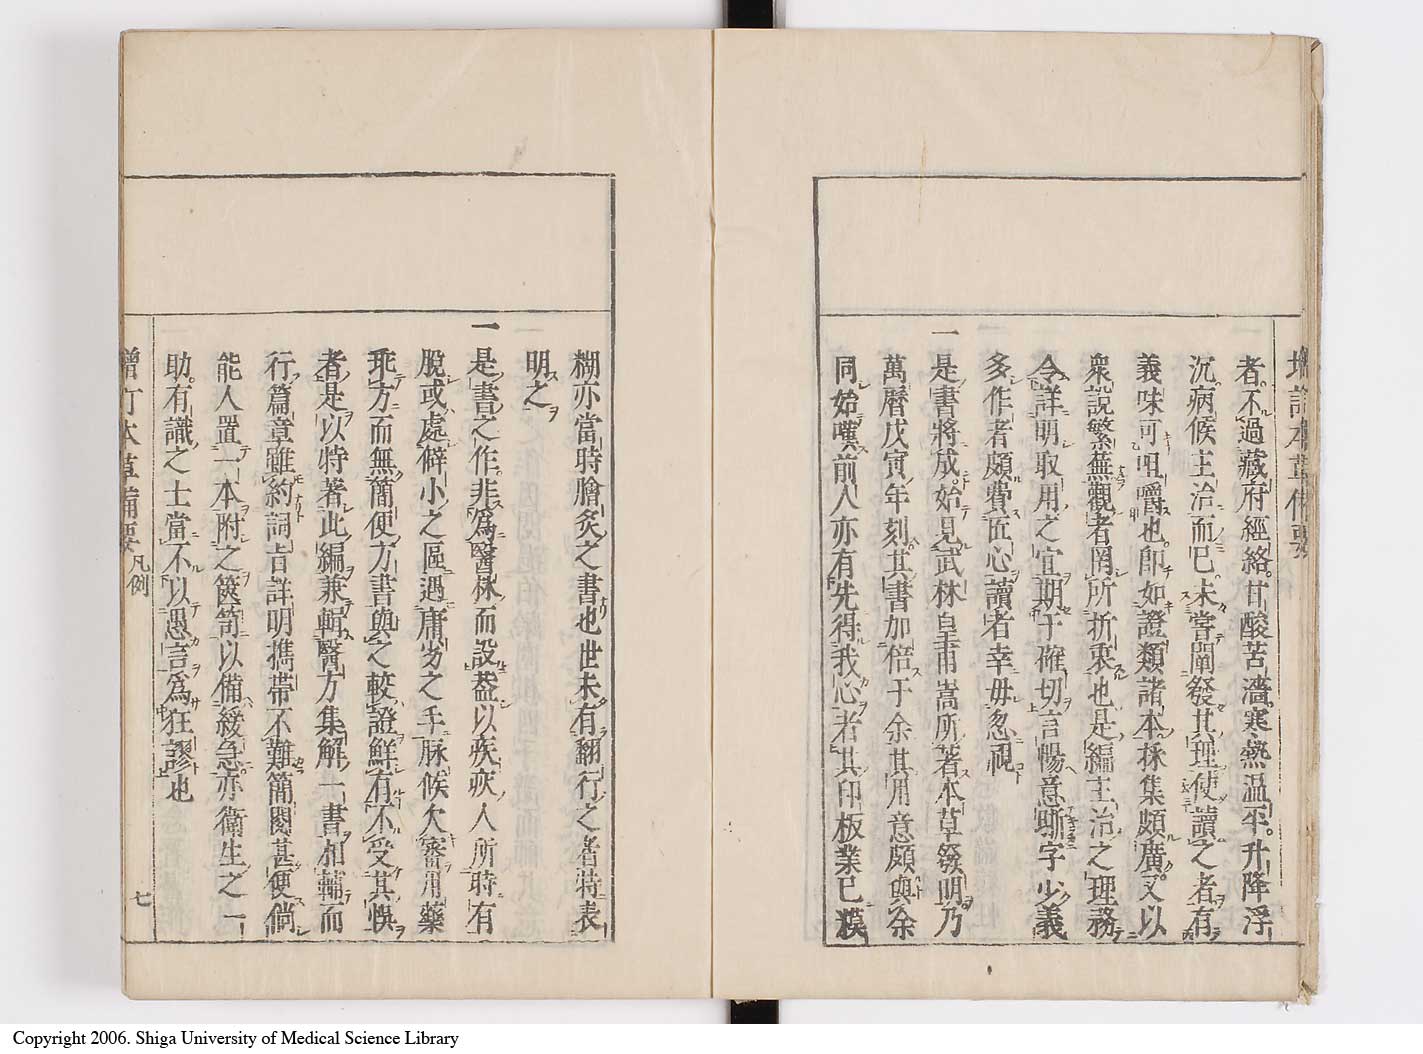 增訂本草備要
者不過藏府經絡甘酸苦濇寒熱溫平升降浮
沉病候主治而已未嘗闡發其理使讀之者有
義味可咀嚼也卽如證類諸本採集頗廣又以
衆說繁蕪觀者罔所折衷也是編主治之理務
令詳明取用之宜期于確切言暢意晰字少義
多作者頗費匠心讀者幸毋忽視
一是書將成始見武林皇甫嵩所著本草發明乃
萬曆戊寅年刻其書加倍于余其用意頗與余
同始嘆前人亦有先得我心者其印板業已糢
糊亦當時膾炙之書也世未有翻行之者特表
明之
一是書之作非爲醫林而設蓋以疾疢人所時有
脫或處僻小之區遇庸劣之手脉候欠審用藥
乖方而無簡便方書與之較證鮮有不受其悞
者是以特著此編兼輯醫方集解一書相輔而
行篇章雖約詞旨詳明携帶不難簡閱甚便倘
能人置一本附之篋笥以備緩急亦衛生之一
助有識之士當不以愚言爲狂謬也
增訂本草備要 凡例 七
Copyright 2006. Shiga University of Medical Science Library